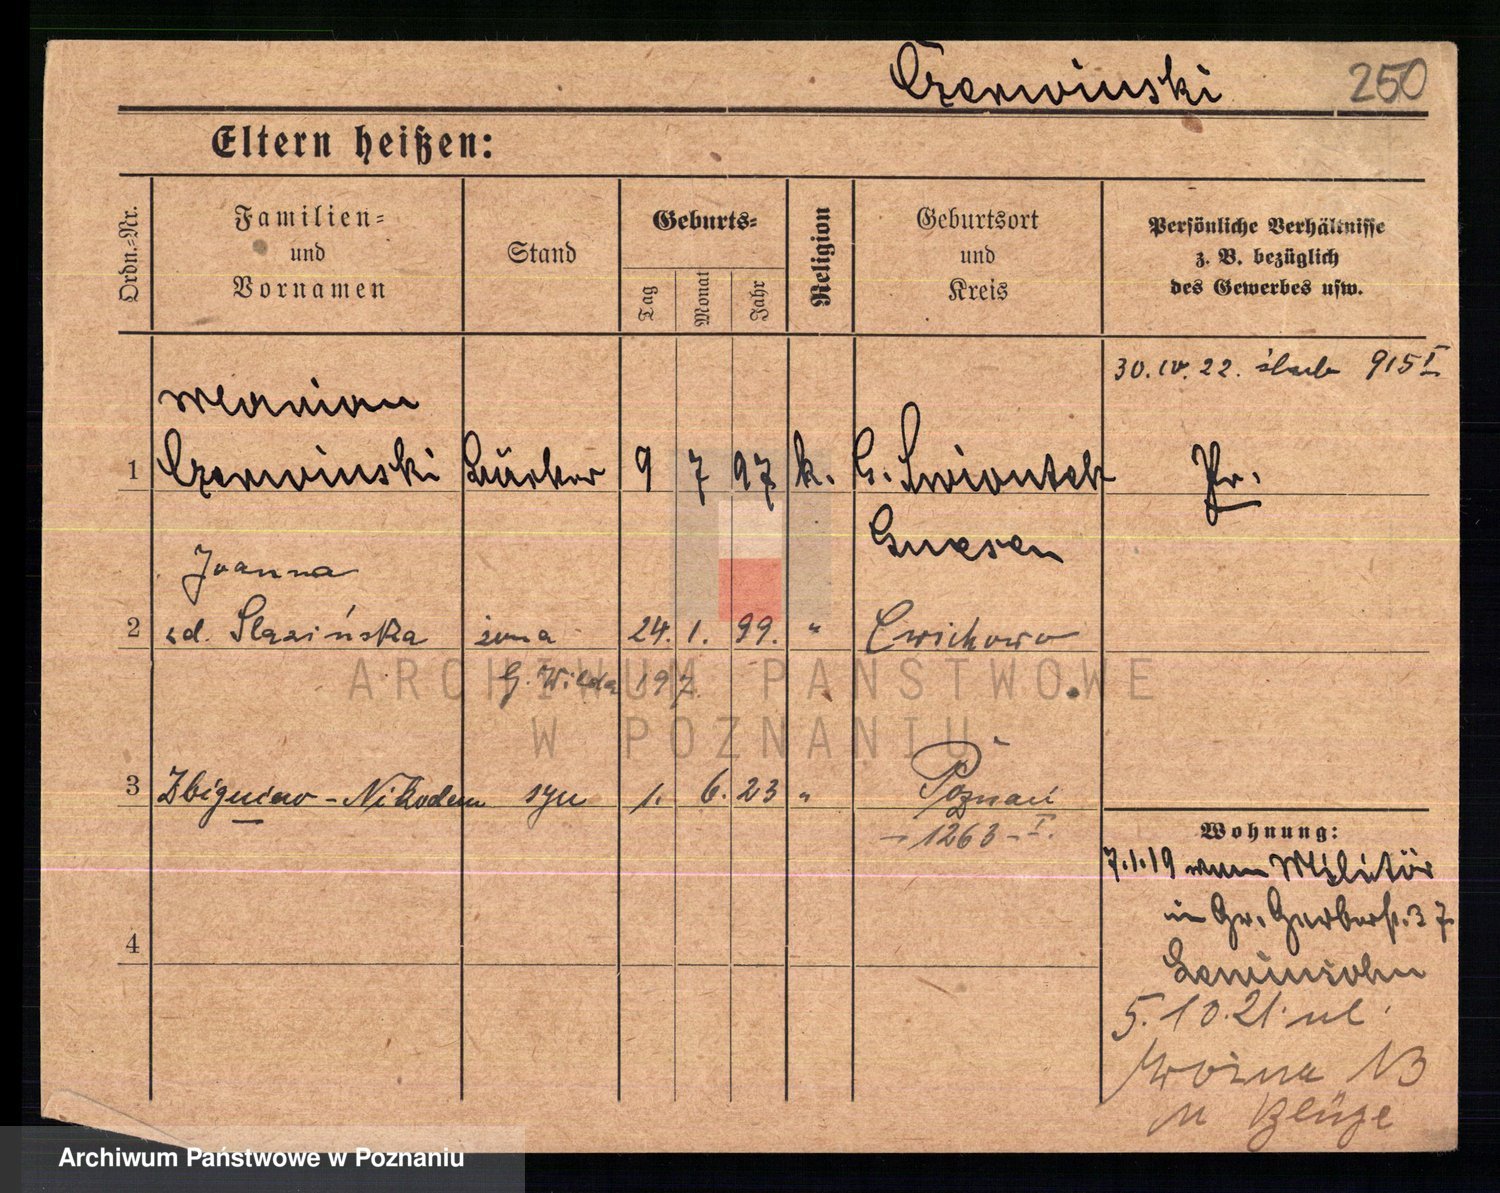 Czerwinski 250
Eltern heißen:
Ordn.-Nr.
Familien-
und
Vornamen
Stand
Geburts-
Tag
Monat
Jahr
Religion
Geburtsort
und
Kreis
Persönliche Verhältnisse
z. B. bezüglich
des Gewerbes usw.
30.IV.22. ślub 915 I
Marian
1 Czerwinski Bäcker 9 7 97 k. G. Swiontek Pr.
Gnesen
Joanna
2 zd. Slazińska żona 24. 1. 99. " Cwichowo
G. Wilda 197
3 Zbigniew - Nikodem syn 1. 6. 23 " Poznań
- 1263 - I.
4
Wohnung:
7.1.19 vom Militär
in Gr. Gerberst. 37.
Lewinsohn
5.10.21. ul.
Woźna 13
u
ARCHIWUM PAŃSTWOWE
W POZNANIU
Archiwum Państwowe w Poznaniu